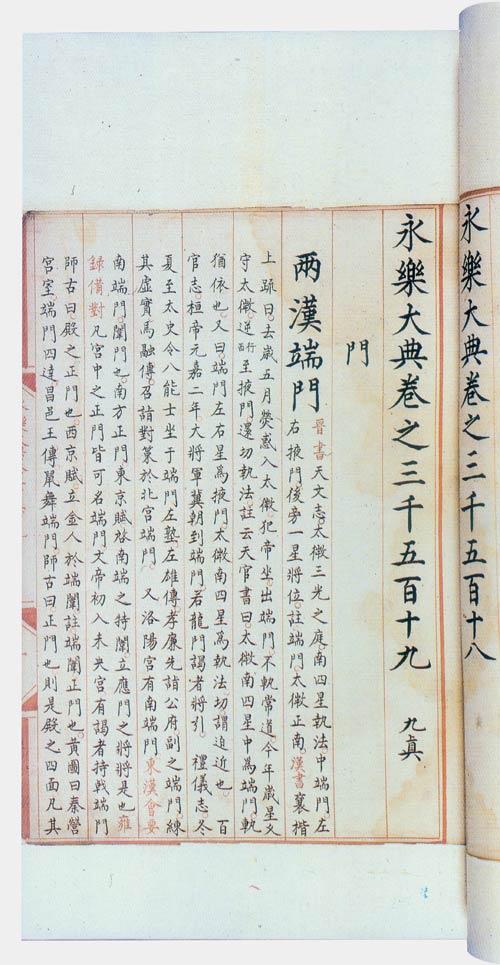 永樂大典卷之三千五百十八
永樂大典卷之三千五百十九 九真
門
兩漢端門
晉書天文志太微三光之庭南四星執法中端門左
右掖門後旁一星將位註端門太微正南漢書襄楷
上疏曰去歲五月熒惑入太微犯帝坐出端門不軌常道今年歲星久
守太微逆行西至掖門還切執法註云天官書曰太微南四星中為端門軌
猶依也又曰端門左右星為掖門太微南四星為執法切謂迫近也 百
官志桓帝元嘉二年大將軍冀朝到端門若龍門謁者將引 禮儀志冬
夏至太史令八能士坐于端門左塾左雄傳孝廉先詣公府副之端門練
其虛實馬融傳召詣對策於北宮端門 又洛陽宮有南端門東漢會要
南端門闈門也南方正門東京賦啓南端之特闈立應門之將將是也雍
錄備對凡宮中之正門皆可名端門文帝初入未央宮有謁者持戟端門
師古曰殿之正門也西京賦立金人於端闈註端闈正門也黃圖曰秦營
宮室端門四達昌邑王傳鼠舞端門師古曰正門也則是殿之四面凡其